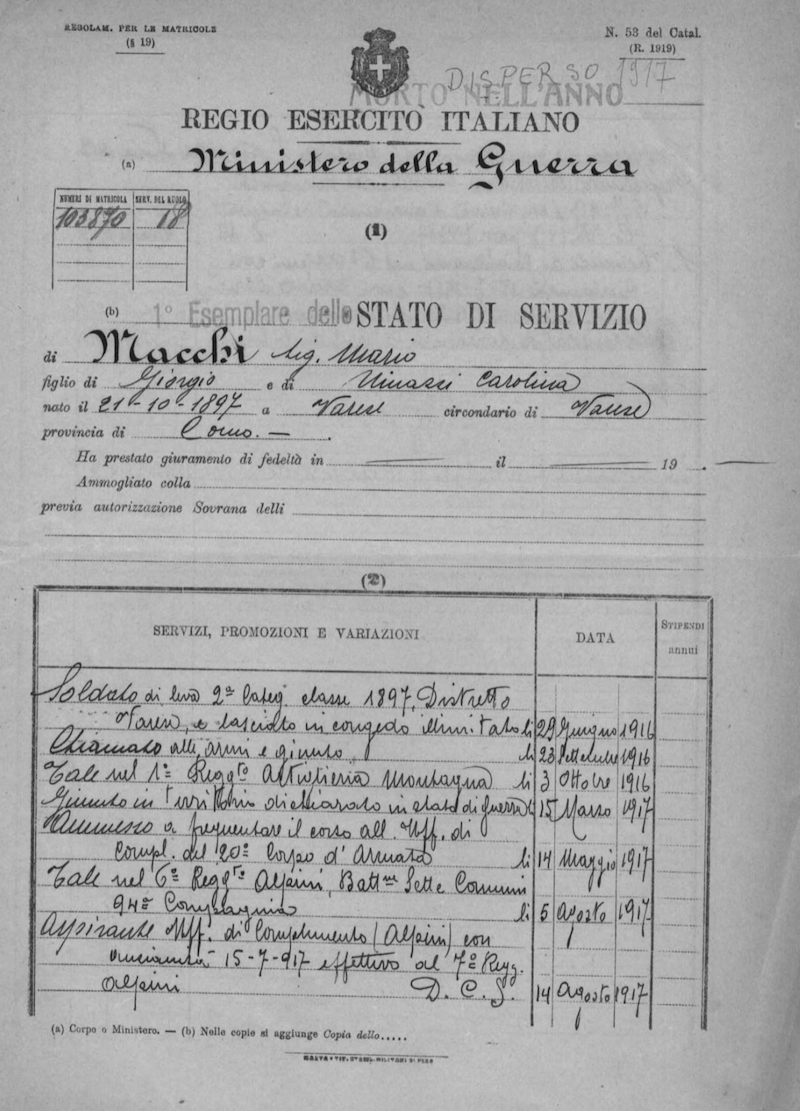 REGOLAM. PER LE MATRICOLE
(§ 19)
N. 53 del Catal.
(R. 1919)
DISPERSO 1917
MORTO NELL'ANNO
REGIO ESERCITO ITALIANO
(a) Ministero della Guerra
NUMERI DI MATRICOLA SERV. DEL RUOLO
103870 18
(1)
(b) 1° Esemplare dello STATO DI SERVIZIO
di Macchi Sig. Mario
figlio di Giorgio e di Carolina
nato il 21-10-1897 a Varese circondario di Varese
provincia di Como. —
Ha prestato giuramento di fedeltà in — il — 19 . —
Ammogliato colla
previa autorizzazione Sovrana delli
(2)
SERVIZI, PROMOZIONI E VARIAZIONI DATA STIPENDI annui
Soldato di leva 2ª Categ. classe 1897, Distretto
Varese, e lasciato in congedo illimitato li 29 Giugno 1916
Chiamato alle armi e giunto li 23 Settembre 1916
Tale nel 1° Regg.to Artiglieria Montagna li 3 Ottobre 1916
Giunto in territorio dichiarato in stato di guerra li 15 Marzo 1917
Ammesso a frequentare il corso all. Uff. di
Compl. del 20° Corpo d'Armata li 14 Maggio 1917
Tale nel 6° Regg.to Alpini, Batt.ne Sette Comuni
94ª Compagnia li 5 Agosto 1917
Aspirante Uff. di Complemento (Alpini) con
anzianità 15-7-917 effettivo al 7° Regg.
Alpini D. C. S. 14 Agosto 1917
(a) Corpo o Ministero. — (b) Nelle copie si aggiunge Copia dello.....